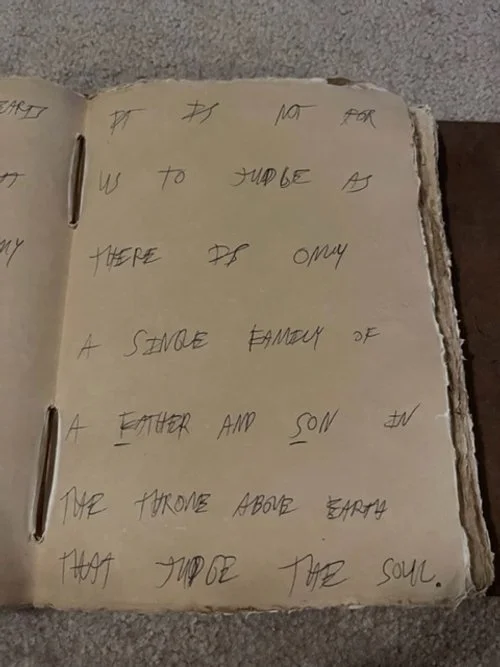 IT IS NOT FOR
US TO JUDGE AS
THERE IS ONLY
A SINGLE FAMILY OF
A FATHER AND SON IN
THE THRONE ABOVE EARTH
THAT JUDGE THE SOUL.